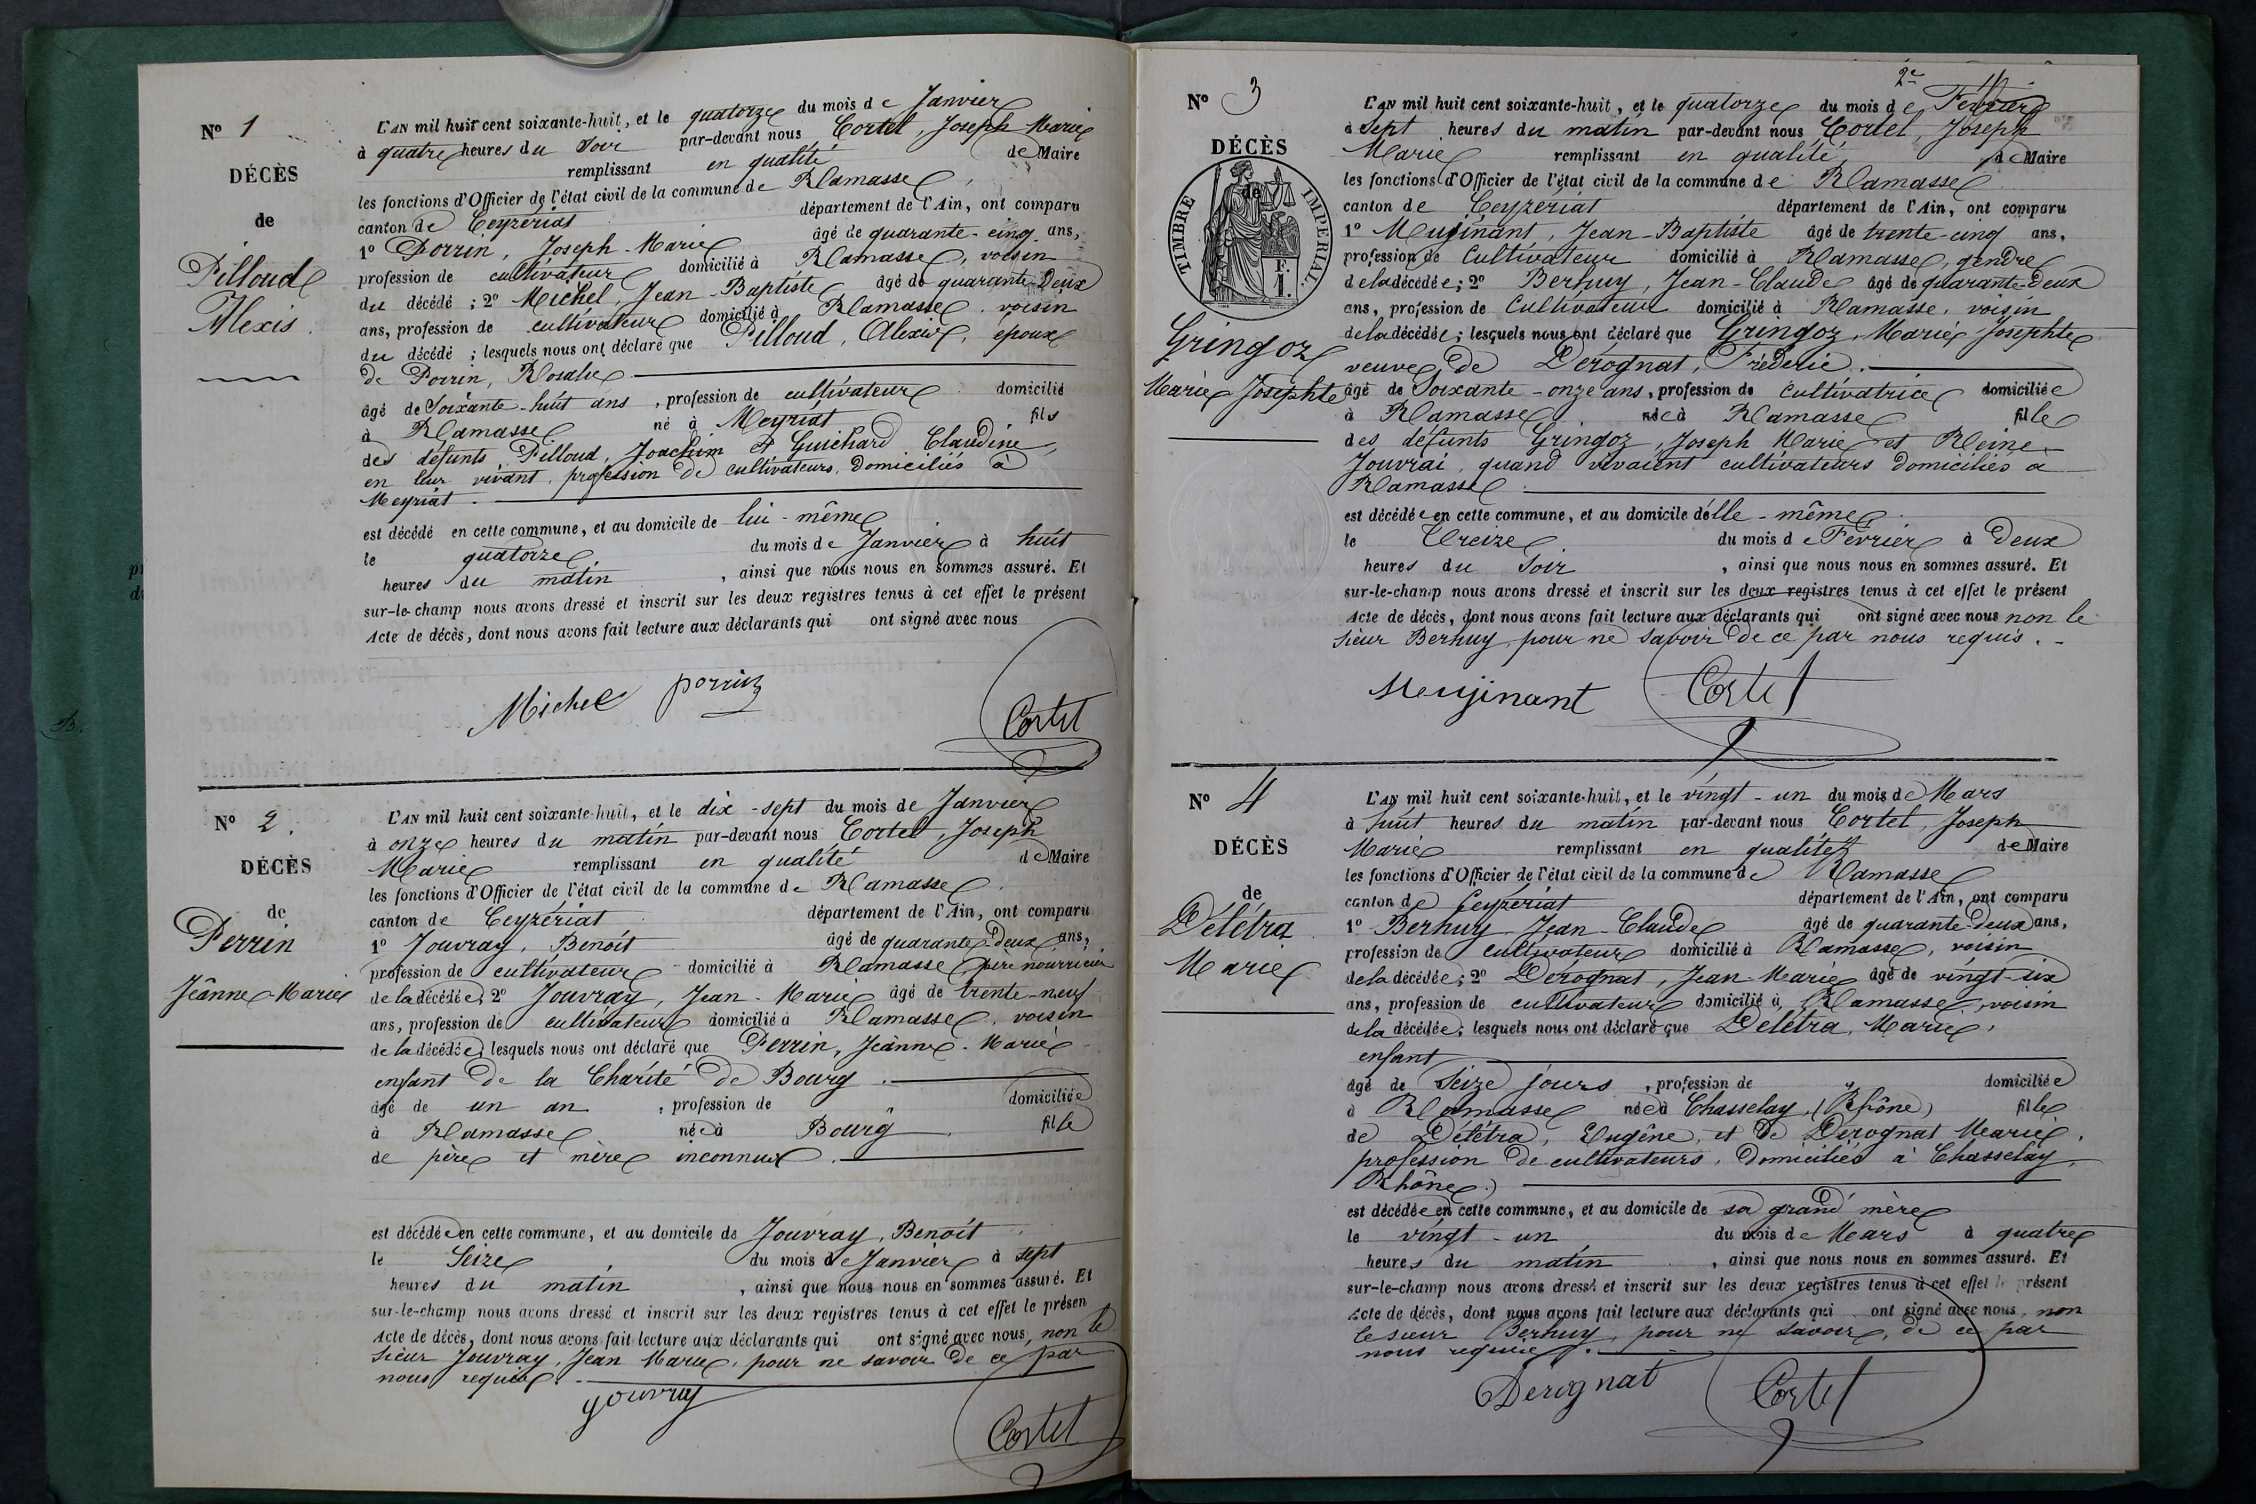 N° 1
DÉCÈS
de
Pilloud
Alexis.
L'AN mil huit cent soixante-huit, et le quatorze du mois de Janvier
à quatre heures du soir par-devant nous Cortet, Joseph Marie
remplissant en qualité de Maire
les fonctions d'Officier de l'état civil de la commune de Ramasse,
canton de Ceyzériat département de l'Ain, ont comparu
1° Porrin, Joseph-Marie âgé de quarante-cinq ans,
profession de cultivateur domicilié à Ramasse, voisin
du décédé ; 2° Michel, Jean-Baptiste âgé de quarante-Deux
ans, profession de cultivateur domicilié à Ramasse, voisin
du décédé ; lesquels nous ont déclaré que Pilloud, Alexis, époux
de Porrin, Rosalie
âgé de Soixante-huit ans, profession de cultivateur domicilié
à Ramasse né à Meyriat fils
des défunts Pilloud, Joachim et Guichard Claudine,
en leur vivant, profession de cultivateurs, Domiciliés à
Meyriat.
est décédé en cette commune, et au domicile de lui-même
le quatorze du mois de Janvier à huit
heures du matin, ainsi que nous nous en sommes assuré. Et
sur-le-champ nous avons dressé et inscrit sur les deux registres tenus à cet effet le présent
Acte de décès, dont nous avons fait lecture aux déclarants qui ont signé avec nous
Michel porrin
Cortet
N° 2.
DÉCÈS
de
Perrin
Jeânne-Marie
L'AN mil huit cent soixante-huit, et le dix-sept du mois de Janvier
à onze heures du matin par-devant nous Cortet, Joseph
Marie remplissant en qualité de Maire
les fonctions d'Officier de l'état civil de la commune de Ramasse.
canton de Ceyzériat département de l'Ain, ont comparu
1° Jouvray, Benoît âgé de quarante-Deux ans,
profession de cultivateur domicilié à Ramasse, père nourricier
de la décédée; 2° Jouvray, Jean-Marie âgé de trente-neuf
ans, profession de cultivateur domicilié à Ramasse, voisin
de la décédée; lesquels nous ont déclaré que Perrin, Jeânne-Marie
enfant de la Charité de Bourg.
âgé de un an, profession de " domiciliée
à Ramasse née à Bourg fille
de père et mère inconnus.
est décédée en cette commune, et au domicile de Jouvray, Benoît
le Seize du mois de Janvier à sept
heures du matin, ainsi que nous nous en sommes assuré. Et
sur-le-champ nous avons dressé et inscrit sur les deux registres tenus à cet effet le présen
Acte de décès, dont nous avons fait lecture aux déclarants qui ont signé avec nous, non le
Sieur Jouvray, Jean Marie, pour ne savoir de ce par
nous requis.
Jouvray
Cortet
2e
N° 3
DÉCÈS
de
TIMBRE IMPÉRIAL.
Gringoz
Marie Josephte
L'AN mil huit cent soixante-huit, et le quatorze du mois de Février
à Sept heures du matin par-devant nous Cortet, Joseph
Marie remplissant en qualité de Maire
les fonctions d'Officier de l'état civil de la commune de Ramasse
canton de Ceyzeriat département de l'Ain, ont comparu
1° Mujinant, Jean-Baptiste âgé de trente-cinq ans,
profession de Cultivateur domicilié à Ramasse, gendre
de la décédée; 2° Berhuy, Jean-Claude âgé de quarante-Deux
ans, profession de Cultivateur domicilié à Ramasse, voisin
de la décédée; lesquels nous ont déclaré que Gringoz, Marie Josephte
veuve de Derognat, Fréderic.
âgé de Soixante-onze ans, profession de Cultivatrice domiciliée
à Ramasse née à Ramasse fille
des défunts Gringoz, Joseph Marie et Reine
Jouvrai, quand vivaient cultivateurs domiciliés à
Ramasse.
est décédée en cette commune, et au domicile d'elle-même.
le Treize du mois de Février à Deux
heures du Soir, ainsi que nous nous en sommes assuré. Et
sur-le-champ nous avons dressé et inscrit sur les deux registres tenus à cet effet le présent
Acte de décès, dont nous avons fait lecture aux déclarants qui ont signé avec nous non le
Sieur Berhuy, pour ne savoir de ce par nous requis.
Meujinant Cortet
N° 4
DÉCÈS
de
Délétra
Marie
L'AN mil huit cent soixante-huit, et le vingt-un du mois de Mars
à huit heures du matin par-devant nous Cortet, Joseph
Marie remplissant en qualité de Maire
les fonctions d'Officier de l'état civil de la commune de Ramasse
canton de Ceyzériat département de l'Ain, ont comparu
1° Berhuy Jean-Claude âgé de quarante-Deux ans,
profession de cultivateur domicilié à Ramasse, voisin
de la décédée; 2° Dérognat, Jean-Marie âgé de vingt-six
ans, profession de cultivateur domicilié à Ramasse, voisin
de la décédée; lesquels nous ont déclaré que Délétra, Marie,
enfant
âgé de Seize jours, profession de " domiciliée
à Ramasse née à Chasselay, (Rhône) fille
de Délétra, Eugêne, et de Derognat Marie,
profession de cultivateurs, Domiciliés à Chasselay,
Rhône.)
est décédée en cette commune, et au domicile de sa grand'mère
le vingt-un du mois de Mars à quatre
heures du matin, ainsi que nous nous en sommes assuré. Et
sur-le-champ nous avons dressé et inscrit sur les deux registres tenus à cet effet le présent
Acte de décès, dont nous avons fait lecture aux déclarants qui ont signé avec nous, non
le sieur Berhuy, pour ne savoir, de ce par
nous requis.
Derognat Cortet